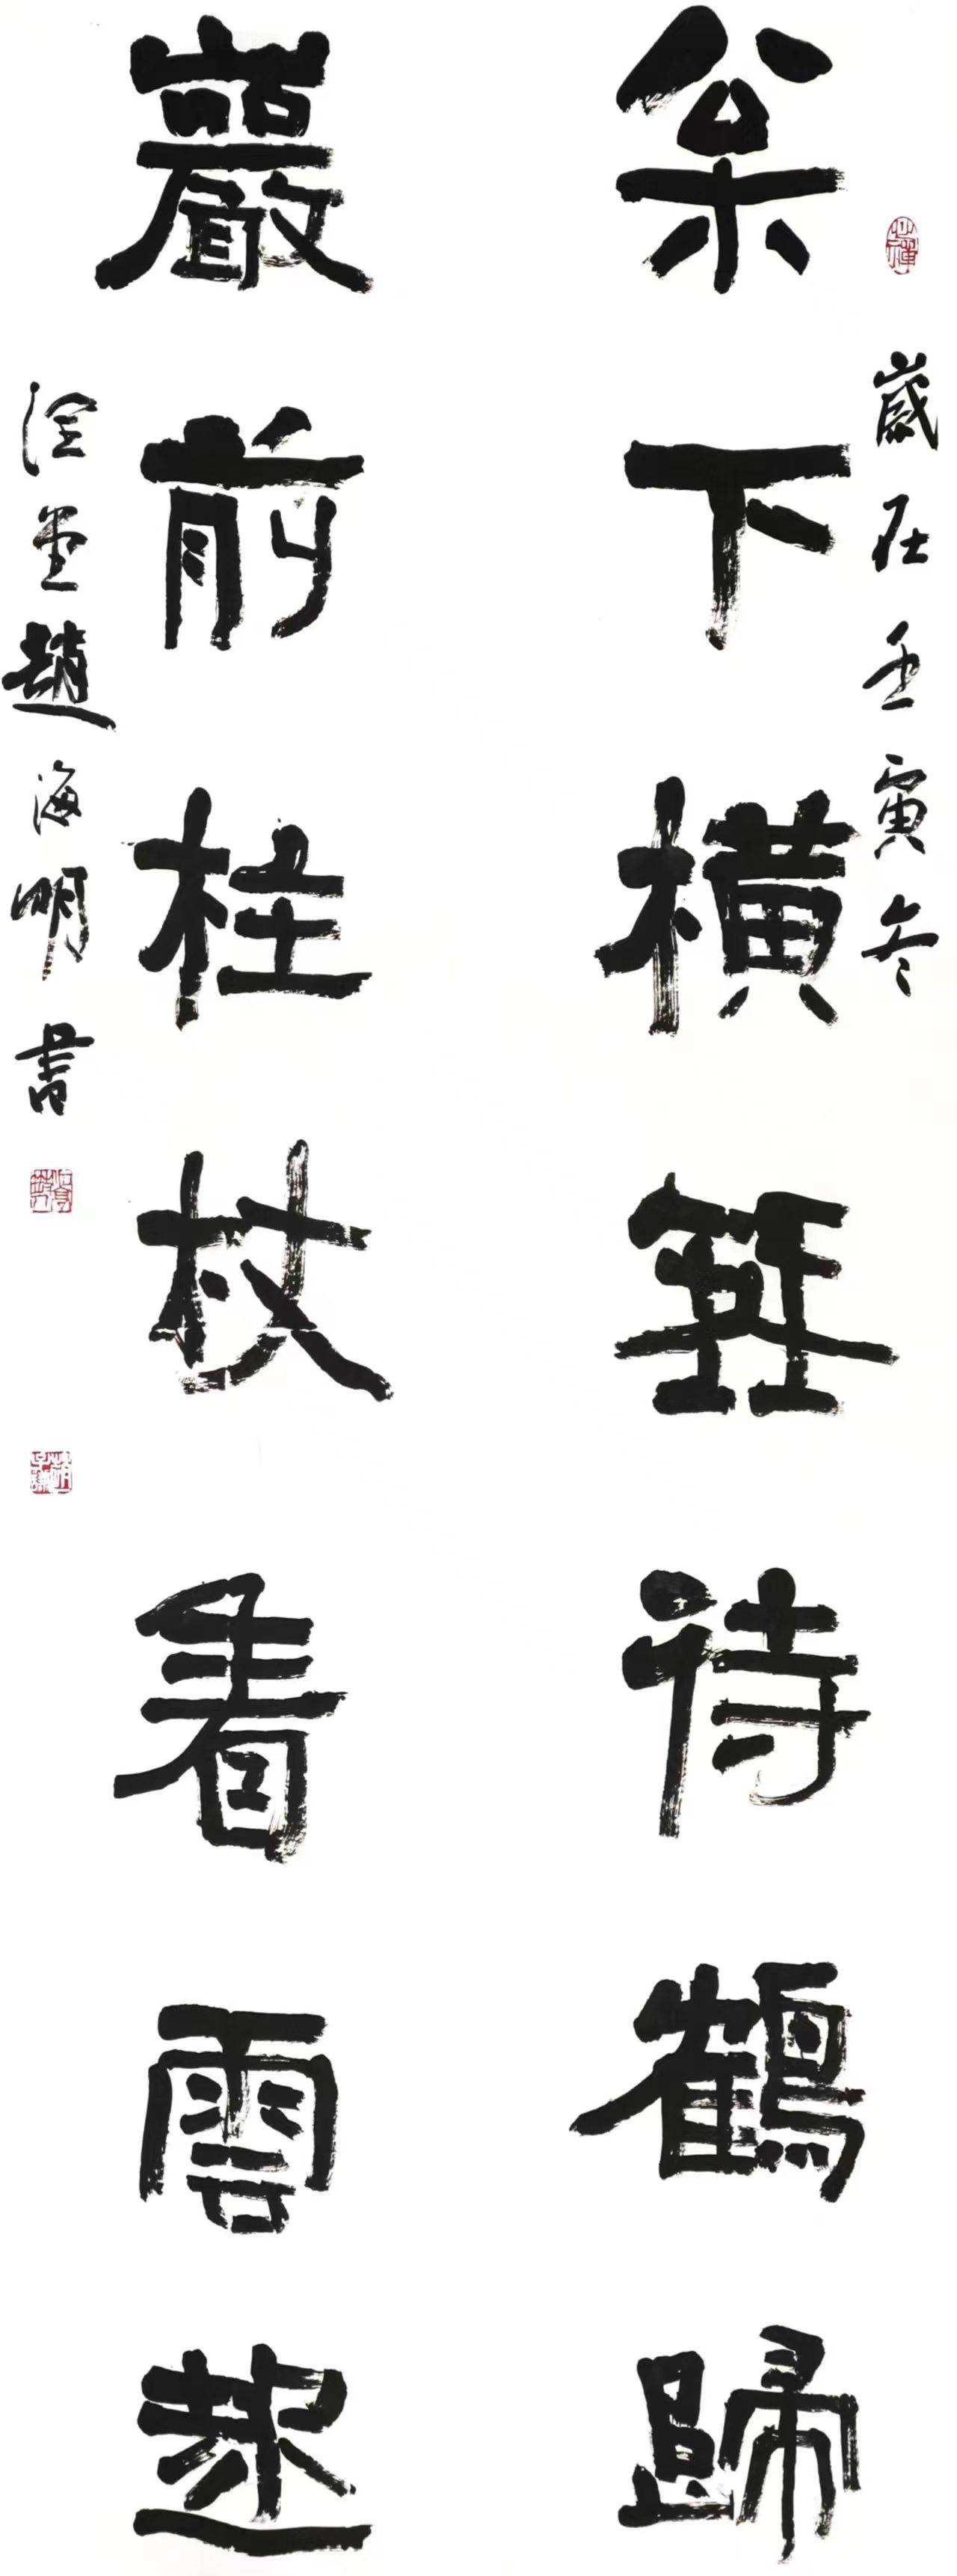 歲在壬寅冬
枀下橫琴待鶴歸
巖前柱杖看雲起
堂趙海明書